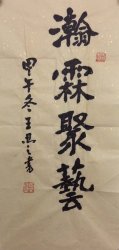 瀚霖聚藝
甲午冬王思之書